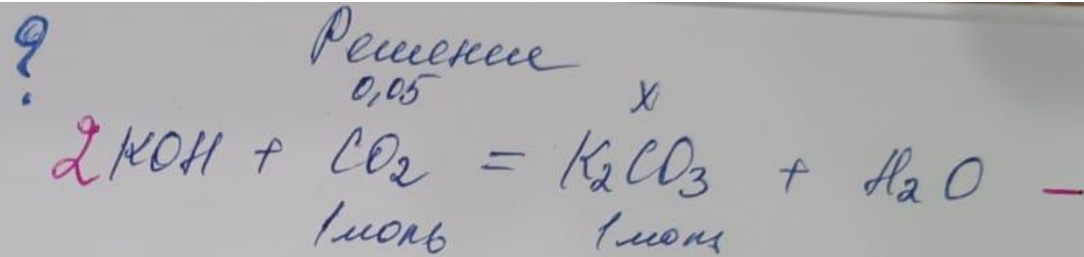 ? Решение
0,05 x
2KOH + CO₂ = K₂CO₃ + H₂O —
1 моль 1 моль